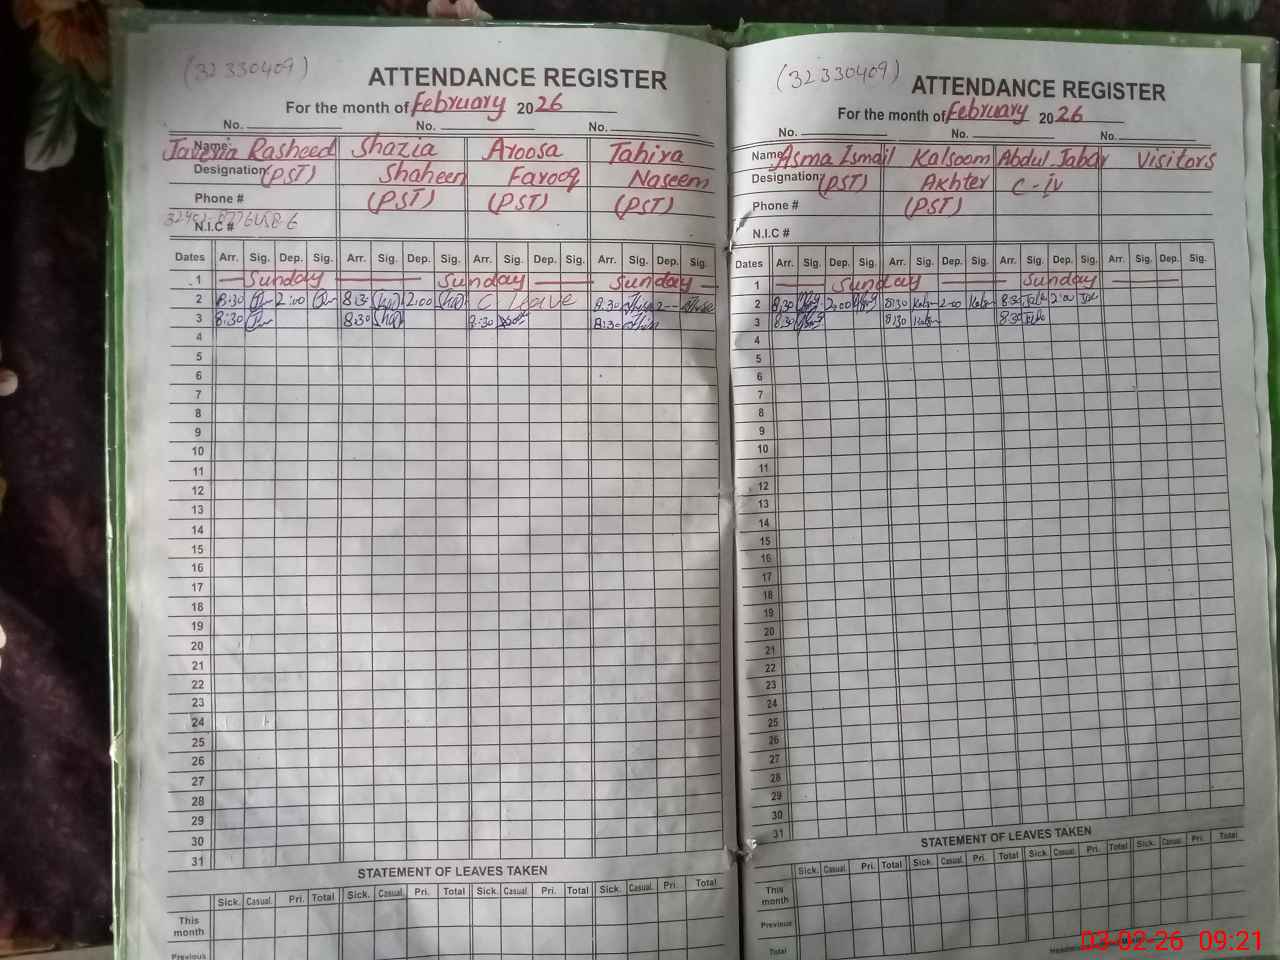 (32330409)
ATTENDANCE REGISTER
For the month of February 2026
No. No. No.
Name: Javeria Rasheed Shazia Aroosa Tahira
Designation (PST) Shaheen Farooq Naseem
Phone # (PST) (PST) (PST)
N.I.C #
Dates Arr. Sig. Dep. Sig. Arr. Sig. Dep. Sig. Arr. Sig. Dep. Sig. Arr. Sig. Dep. Sig.
1 Sunday Sunday Sunday
2 8:30 2:00 8:30 2:00 C leave 8:30 2
3 8:30 8:30 8:30 8:30
4
5
6
7
8
9
10
11
12
13
14
15
16
17
18
19
20
21
22
23
24
25
26
27
28
29
30
31
STATEMENT OF LEAVES TAKEN
Sick. Casual. Pri. Total Sick. Casual. Pri. Total Sick. Casual. Pri. Total Sick. Casual. Pri. Total
This month
Previous
(32330409)
ATTENDANCE REGISTER
For the month of February 2026
No. No. No.
Name Asma Ismail Kalsoom Abdul Jabar Visitors
Designation (PST) Akhter C-iv
Phone # (PST)
N.I.C #
Dates Arr. Sig. Dep. Sig. Arr. Sig. Dep. Sig. Arr. Sig. Dep. Sig. Arr. Sig. Dep. Sig.
1 Sunday Sunday
2 8:30 2:00 8:30 2:00 8:30 2:00
3 8:30 8:30 8:30
4
5
6
7
8
9
10
11
12
13
14
15
16
17
18
19
20
21
22
23
24
25
26
27
28
29
30
31
STATEMENT OF LEAVES TAKEN
Sick. Casual. Pri. Total Sick. Casual. Pri. Total Sick. Casual. Pri. Total Sick. Casual. Pri. Total
This month
Previous
Total
03-02-26 09:21